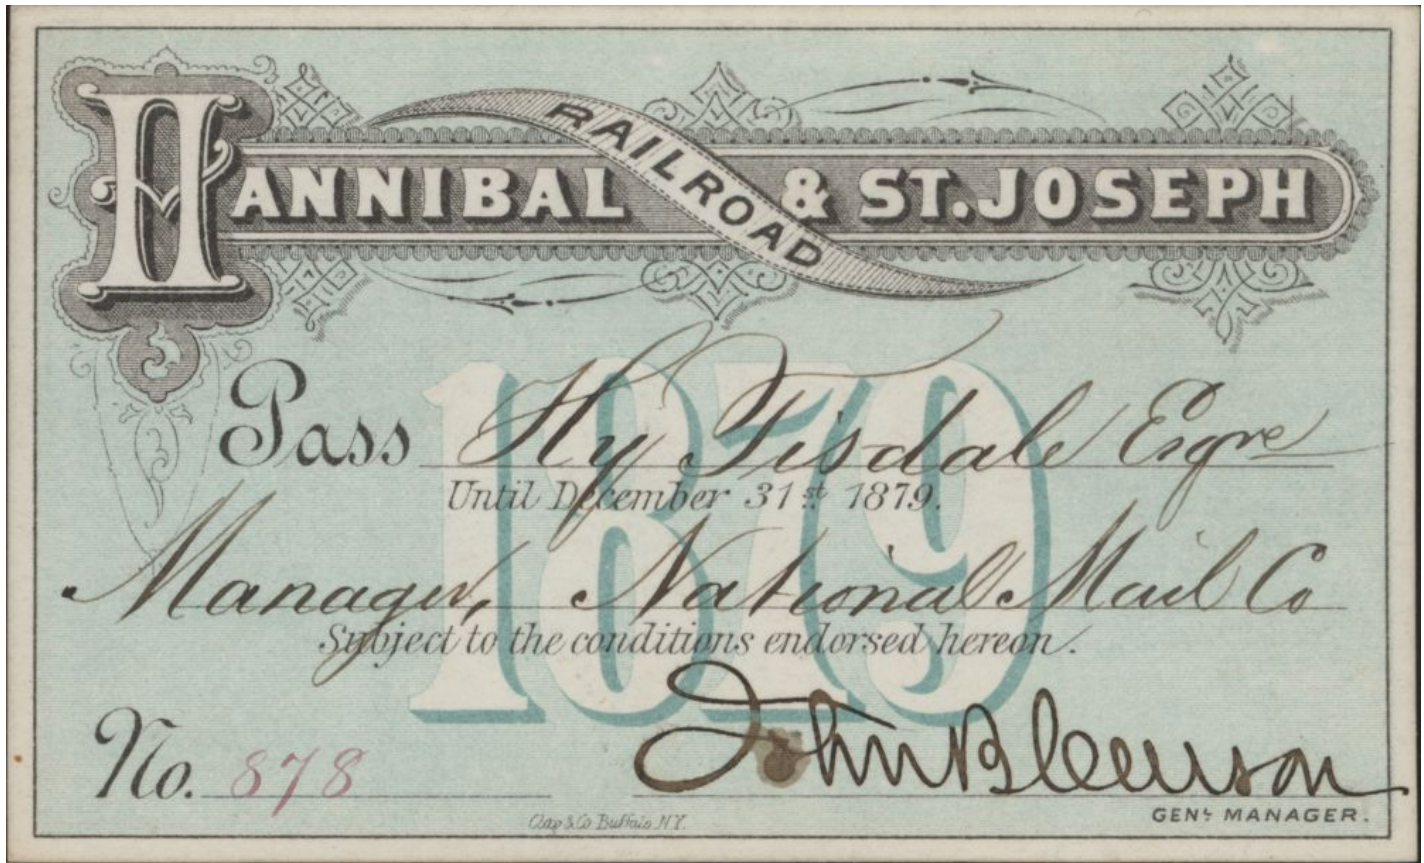 HANNIBAL & ST. JOSEPH
RAILROAD
1879
Pass Hy Tisdale Esqre
Until December 31st 1879.
Manager, National Mail Co
Subject to the conditions endorsed hereon.
No. 878
John B
GENL MANAGER.
Clay & Co Buffalo, N.Y.